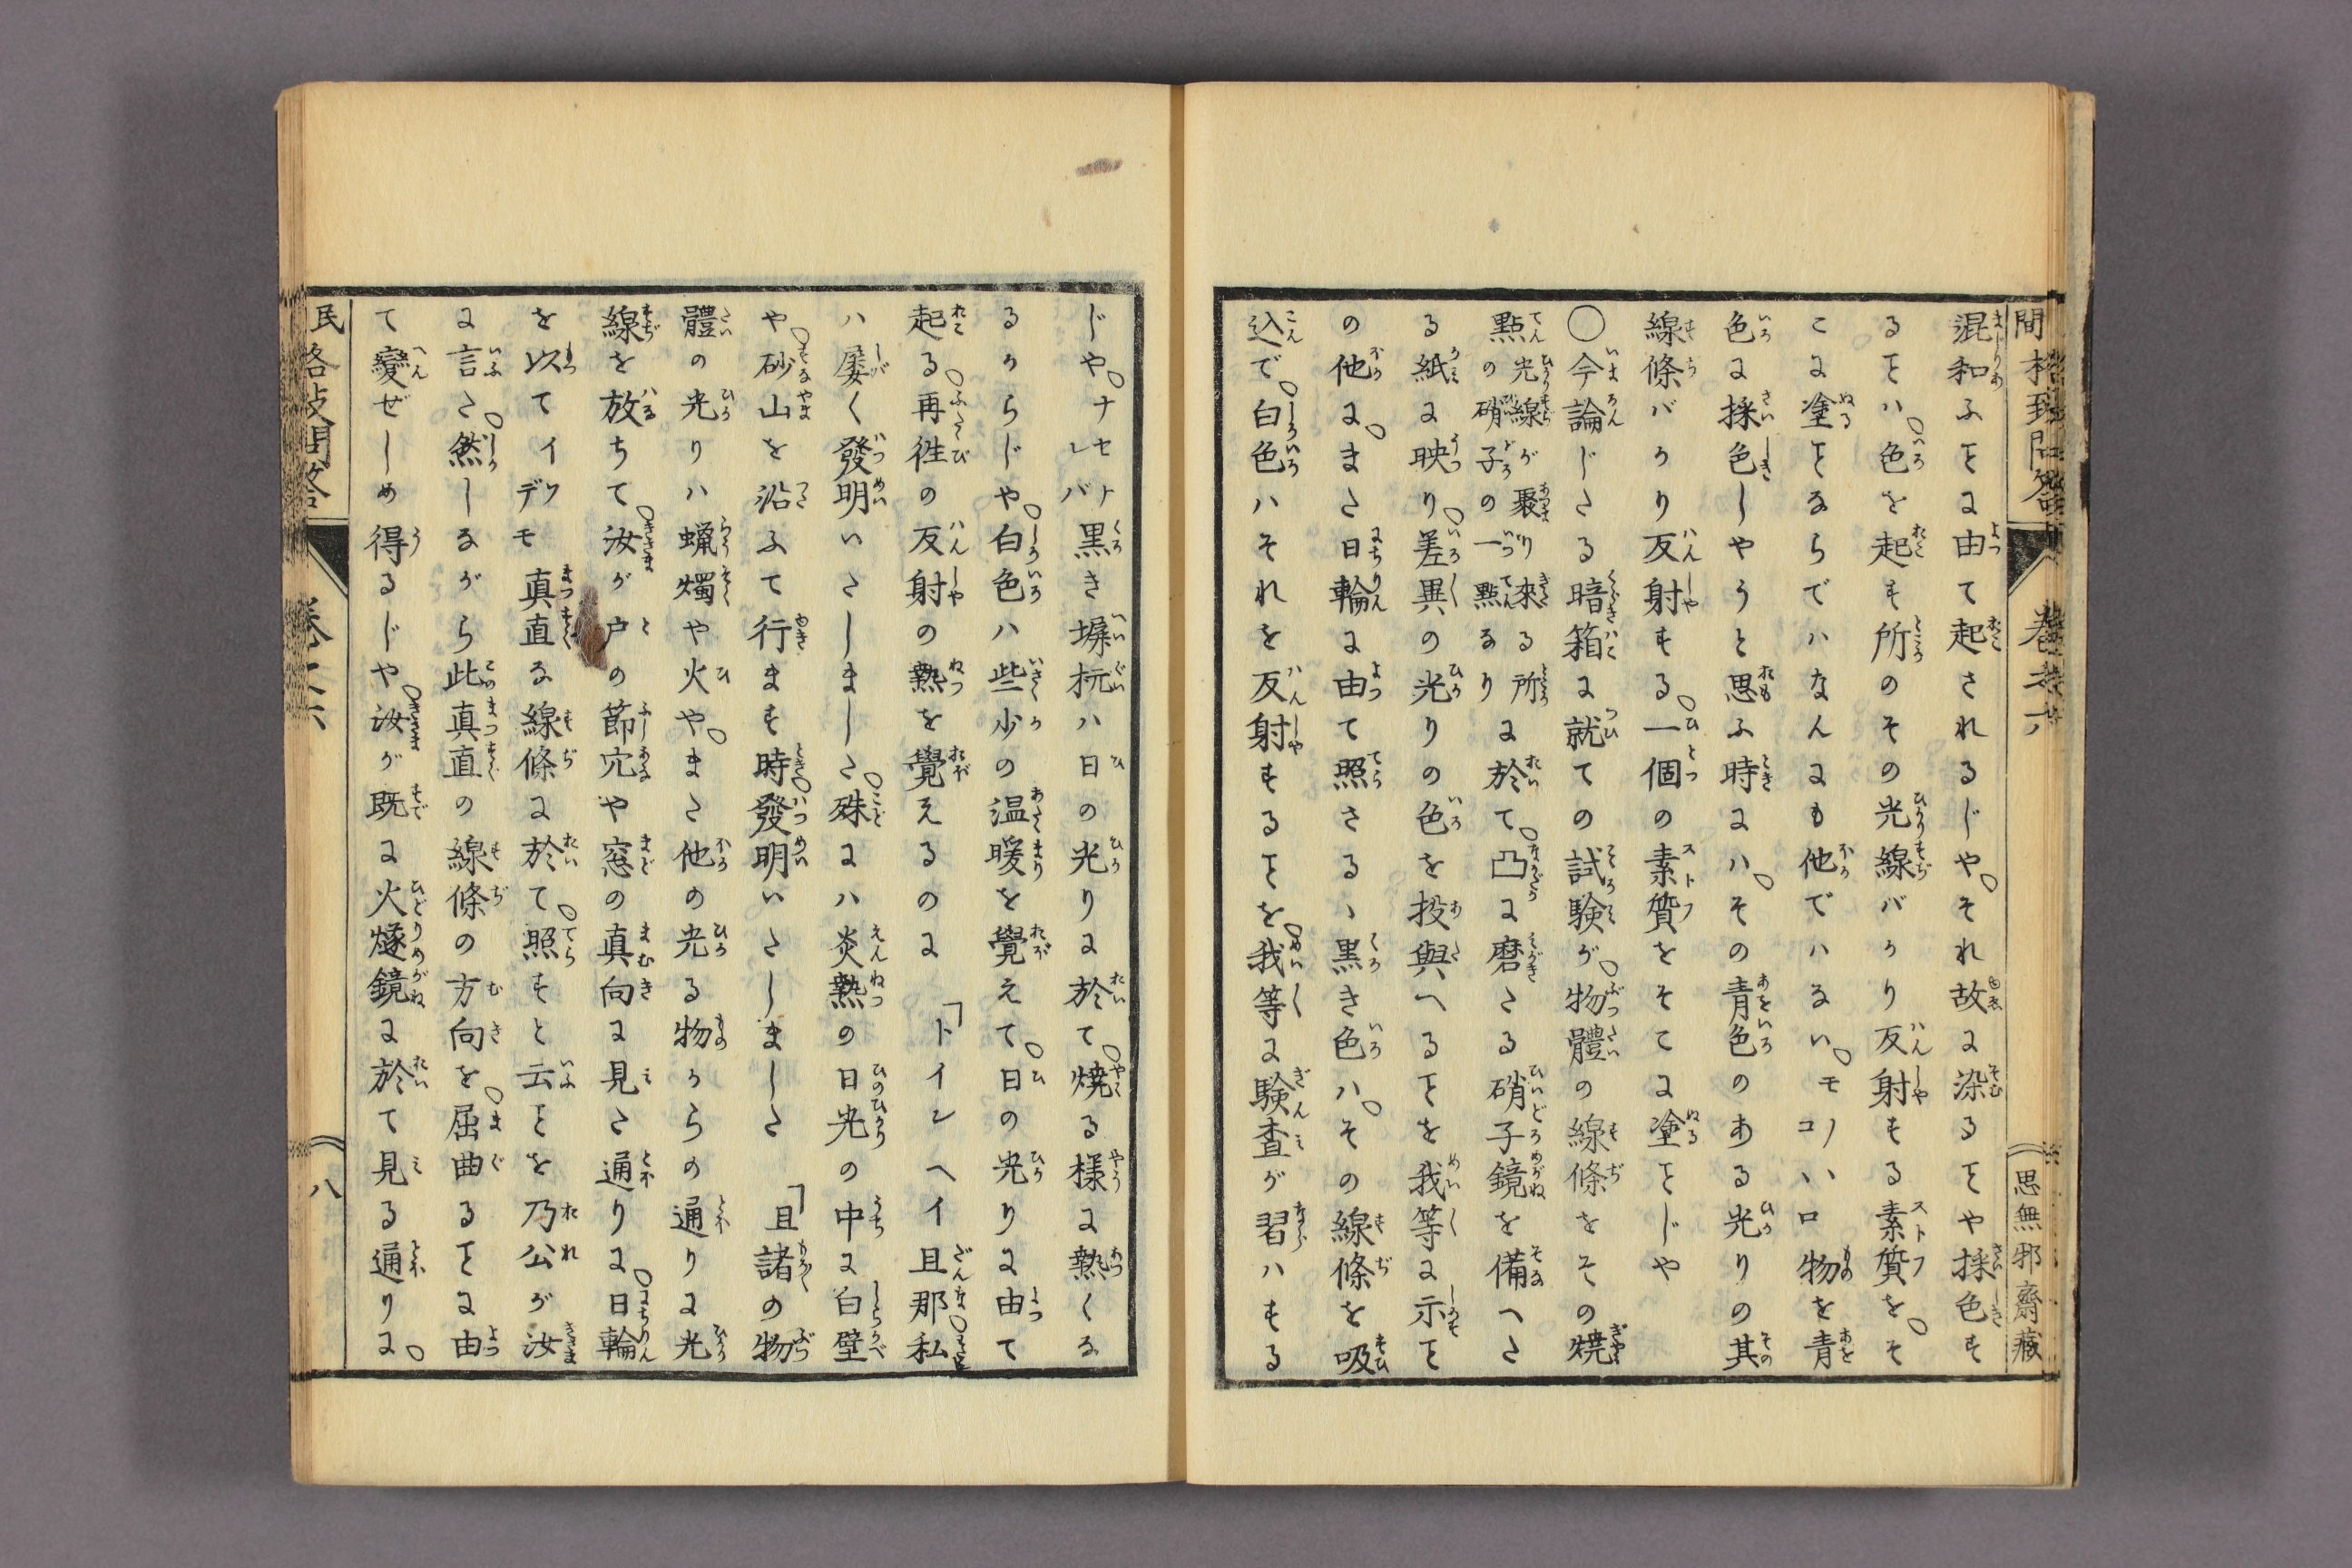 民間格致問答 卷之六
思無邪齋藏
混和ふことに由て起されるじや。それ故に染ることや採色す
ることハ。色を起す所のその光線バかり反射する素質を。そ
こに塗ことならでハなんにも他でハない。モノコハロ物を青
色に採色しやうと思ふ時にハ。その青色のある光りの其
線條バかり反射する。一個の素質をそこに塗ことじや
○今論じたる暗箱に就ての試驗が。物體の線條をその燒
點の光線が聚り來る所
硝子の一點なり
に於て。凸に磨たる硝子鏡を備へた
る紙に映り。差異の光りの色を投與へることを我等に示こと
の他に。また日輪に由て照さるゝ黒き色ハ。その線條を吸
込で。白色ハそれを反射することを。我等に驗査が習ハする
じや。ナセナレバ黒き塀杭ハ日の光りに於て。燒る樣に熱くな
るからじや。白色ハ些少の温暖を覺えて。日の光りに由て
起る。再徃の反射の熱を覺えるのに「トイレヘイ且那。私
ハ屡く發明いたしました。殊にハ炎熱の日光の中に白壁
や。砂山を沿ふて行ます時。發明いたしました「且諸の物
體の光りハ蝋燭や火や。また他の光る物からの通りに光
線を放ちて。汝が戸の節穴や窓の真向に見た通りに。日輪
を以てイデワモ真直な線條に於て。照すと云ことを乃公が汝
に言た。然しながら此真直の線條の方向を。屈曲ることに由
て變ぜしめ得るじや。汝が既に火燧鏡に於て見る通りに。
民間格致問答 卷之六 八